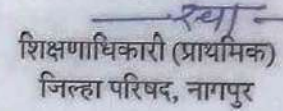 शिक्षणाधिकारी (प्राथमिक)
जिल्हा परिषद, नागपुर